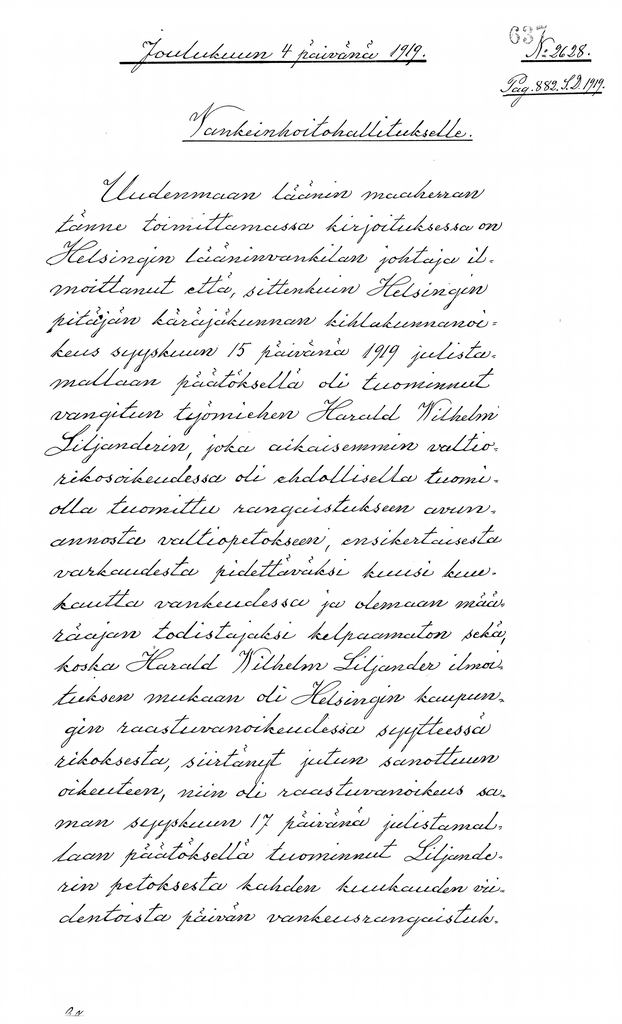 637
Joulukuun 4 päivänä 1919.
No 2628.
Pag. 882. S.D. 1919.
Vankeinhoitohallitukselle.
Uudenmaan läänin maaherran
tänne toimittamassa kirjoituksessa on
Helsingin lääninvankilan johtaja il-
moittanut että, sittenkuin Helsingin
pitäjän käräjäkunnan kihlakunnanoi-
keus syyskuun 15 päivänä 1919 julista-
mallaan päätöksellä oli tuominnut
vangitun työmiehen Harald Wilhelm
Liljanderin, joka aikaisemmin valtio-
rikosoikeudessa oli ehdollisella tuomi-
olla tuomittu rangaistukseen avun-
annosta valtiopetokseen, ensikertaisesta
varkaudesta pidettäväksi kuusi kuu-
kautta vankeudessa ja olemaan mää-
räajan todistajaksi kelpaamaton sekä,
koska Harald Wilhelm Liljander ilmoi-
tuksen mukaan oli Helsingin kaupun-
gin raastuvanoikeudessa syytteessä
rikoksesta, siirtänyt jutun sanottuun
oikeuteen, niin oli raastuvanoikeus sa-
man syyskuun 17 päivänä julistamal-
laan päätöksellä tuominnut Liljande-
rin petoksesta kahden kuukauden vii-
dentoista päivän vankeusrangaistuk-